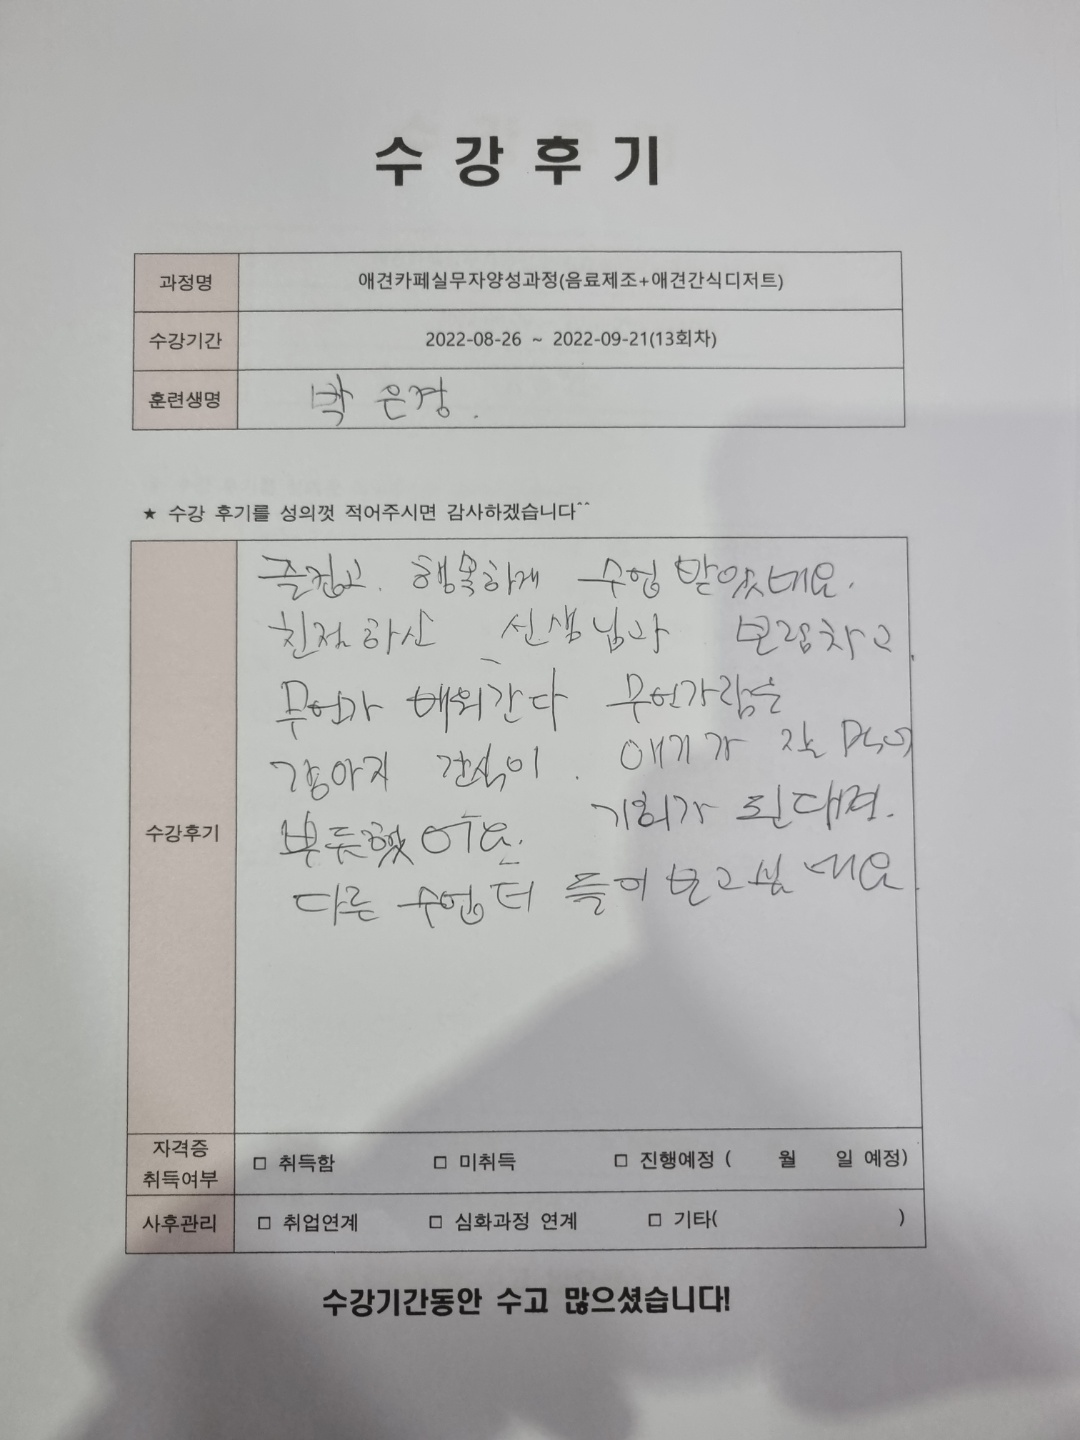 수강후기
과정명 애견카페실무자양성과정(음료제조+애견간식디저트)
수강기간 2022-08-26 ~ 2022-09-21(13회차)
훈련생명 박은경.
★ 수강 후기를 성의껏 적어주시면 감사하겠습니다^^
수강후기
즐겁고. 행복하게 수업 받았네요.
친절하신 선생님과 보람차고
무언가 배워간다 무언가람은
강아지 간식이. 애기가 잘
뿌듯했어요. 기회가 된다면.
다른 수업 더 들어 보고 싶네요
자격증 취득여부 □ 취득함 □ 미취득 □ 진행예정 ( 월 일 예정)
사후관리 □ 취업연계 □ 심화과정 연계 □ 기타( )
수강기간동안 수고 많으셨습니다!